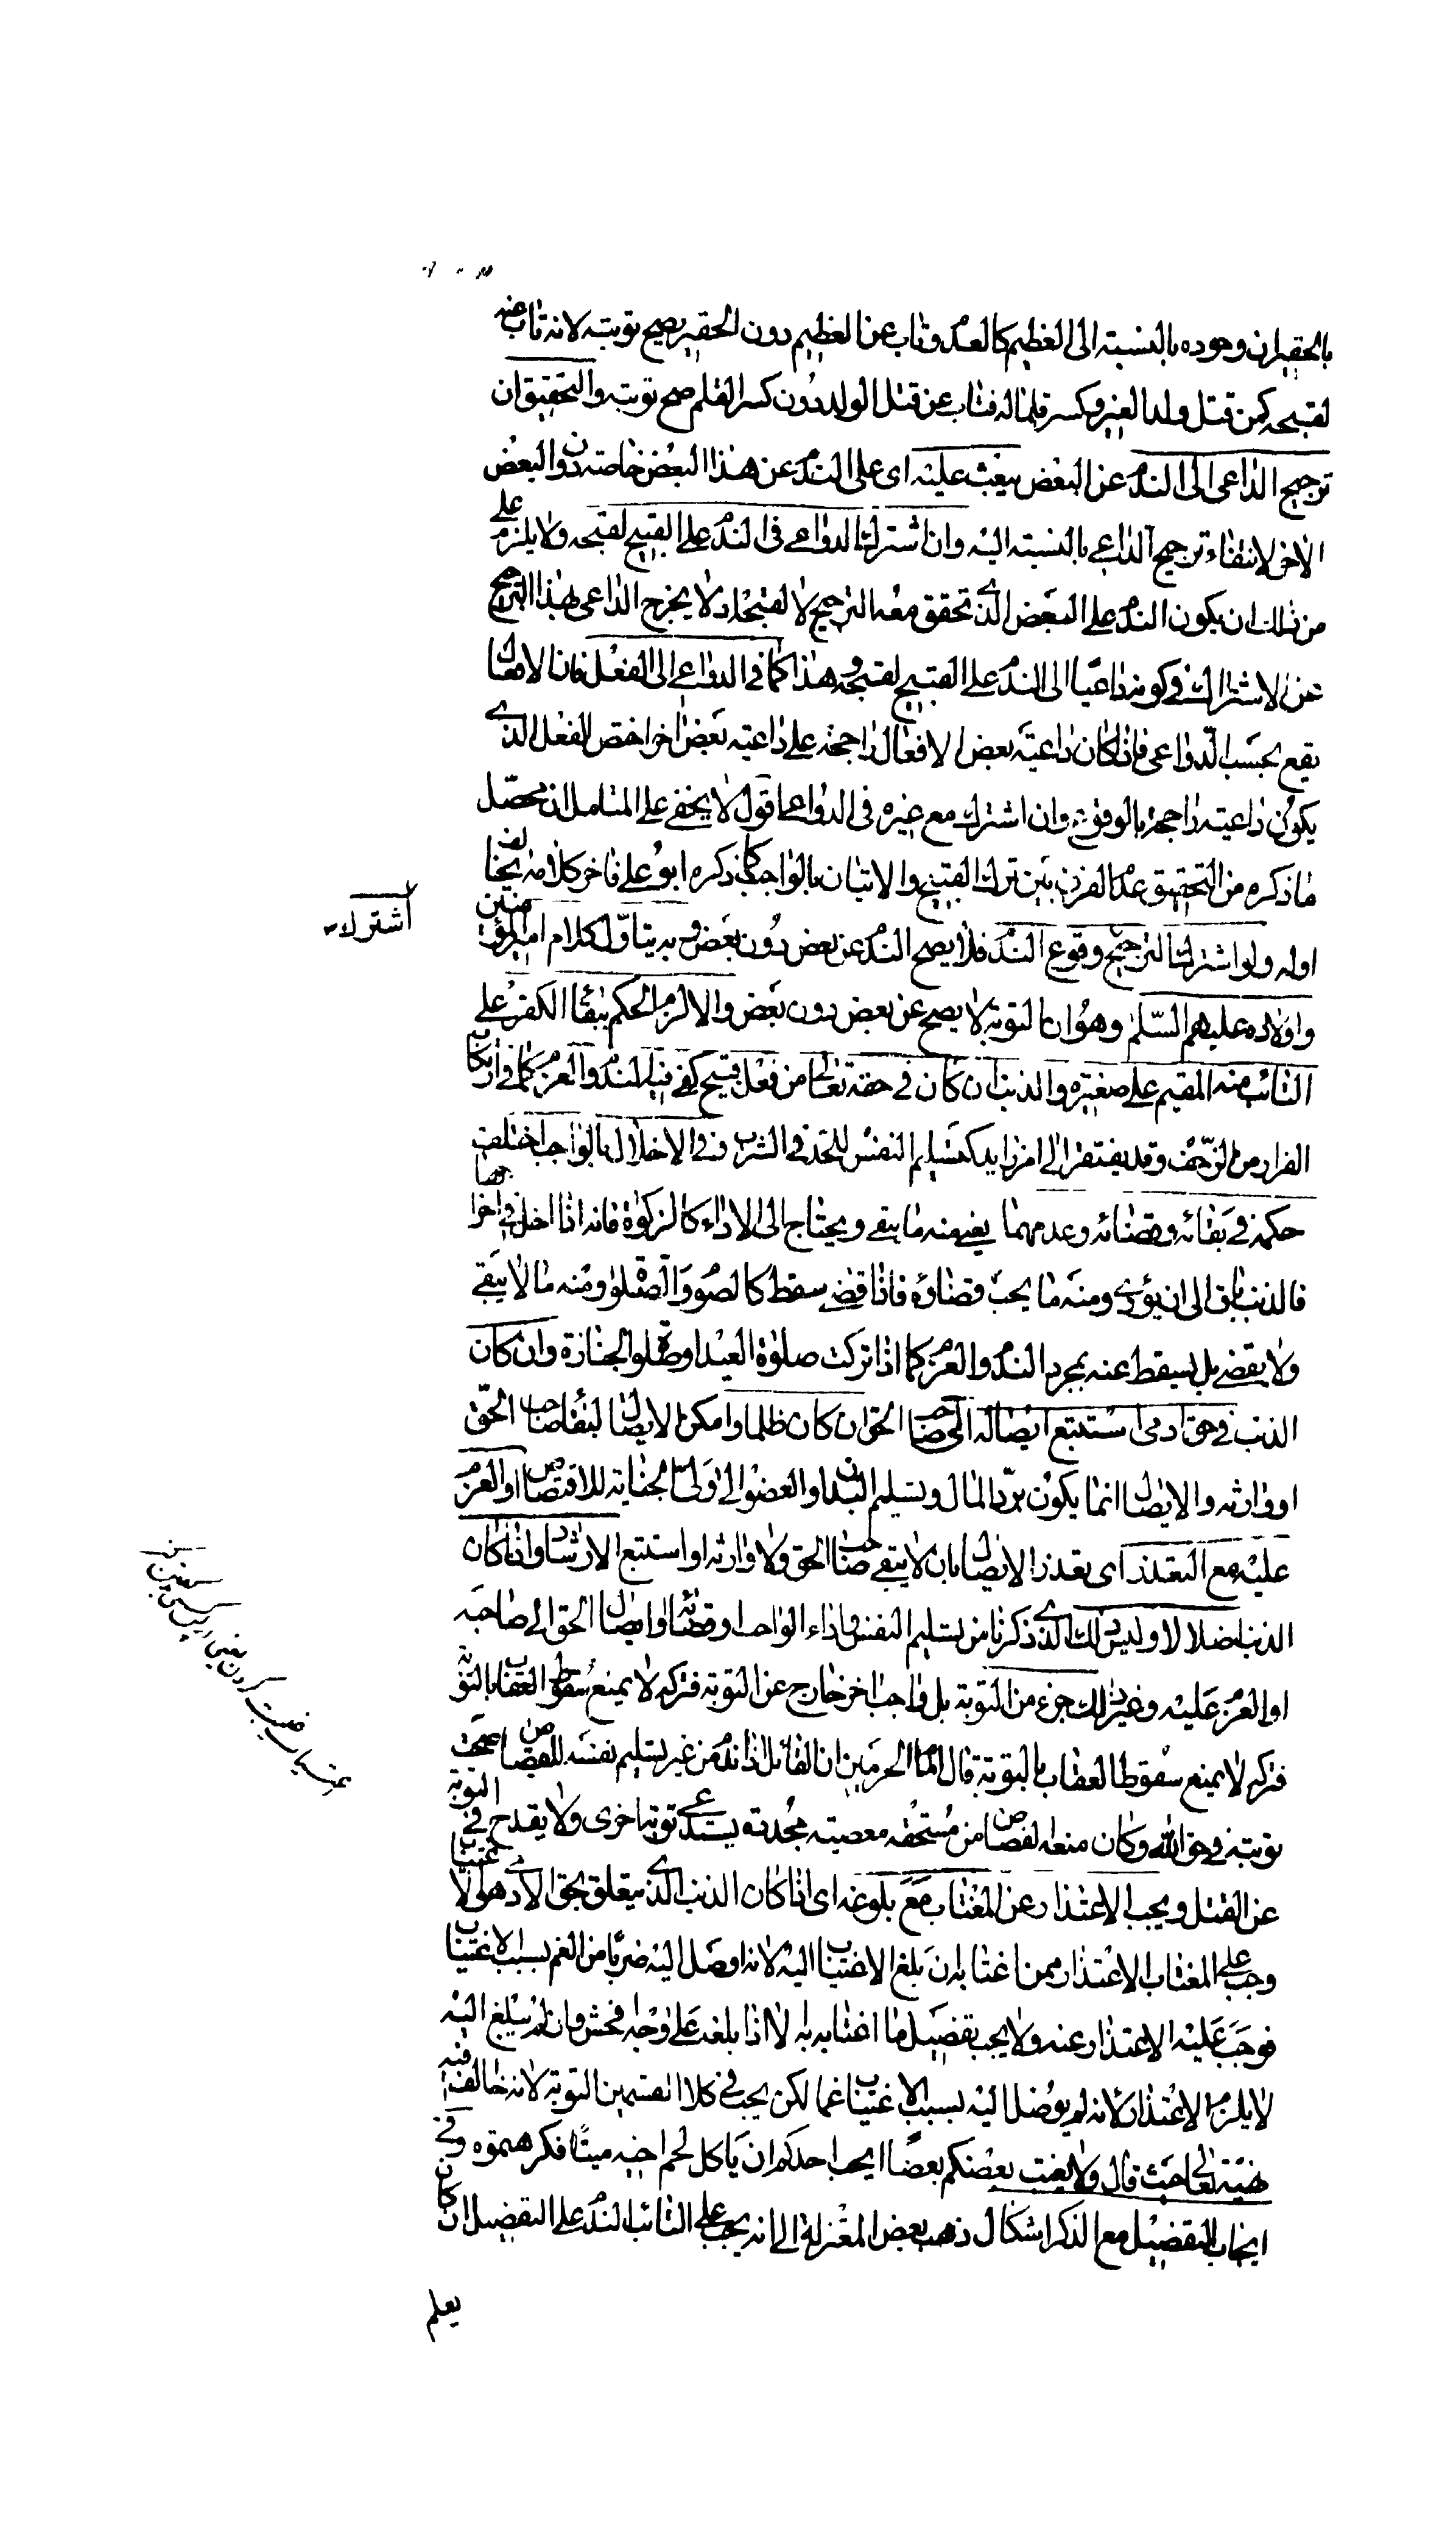 بالحقير ان وجوده بالنسبته الى العظيم كالعدم وتاب عن العظيم دون الحقير يصح توبته لانه تاب عنه
لقبحه كمن قتل ولد الغير وكسر قلما له فتاب عن قتل الولد دون كسر القلم صح توبته والتحقيق ان
ترجيح الداعى الى الندم عن البعض يبعث عليه اى على الندم عن هذا البعض خاصته دون البعض
الاخر لانتفاء ترجيح الداعى بالنسبته اليه وان اشترك الدواعى فى الندم على القبيح لقبحه ولا يلزم
من ذلك ان يكون الندم على البعض الذى تحقق معه الترجيح لا لقبحه اذ لا يخرج الداعى بهذا الترجيح
عن الاشتراك فى كونه داعيا الى الندم على القبيح لقبحه وهذا كما فى الدواعى الى الفعل فان الافعال
يقع بحسب الدواعى فاذا كان داعيته بعض الافعال راجحة على داعيته بعض اخر اختص الفعل الذى
يكون داعيته راجحة بالوقوع وان اشترك مع غيره فى الدواعى اقول لا يخفى على المتامل ان محصل
ما ذكره من التحقيق عدم الفرق بين ترك القبيح والاتيان بالواجب كما ذكره ابو على فاخر كلامه يخالف
اوله ولو اشترك الترجيح وقوع الندم فلا يصح الندم عن بعض دون بعض وبه يتاول كلام امير المؤمنين
واولاده عليهم السلام وهو ان التوبة لا يصح عن بعض دون بعض والا لزم الحكم ببقاء الكفر على
التائب منه المقيم على صغيره والذنب ان كان فى حقه تعالى من فعل قبيح كفى فيه الندم والعزم كما فى ارتكاب
الفرار من الزحف وقد يفتقر الى امر زايد كتسليم النفس للحد فى الشرب وفى الاخلال بالواجب اختلف
حكمه فى بقائه وقضائه وعدمهما يعنى منه ما يبقى ويحتاج الى الاداء كالزكوة فانه اذا اخل فى اخراجها
فالذنب باق الى ان يؤدى ومنه ما يجب قضاؤه فاذا قضى سقط كالصوم والصلوة ومنه ما لا يبقى
ولا يقضى بل يسقط عنه بمجرد الندم والعزم كما اذا تركت صلوة العيد او صلوة الجنازة وان كان
الذنب فى حق ادمى استتبع ايصاله الى صاحب الحق ان كان ظلما وامكن الايصال لبقاء صاحب الحق
او وارثه والايصال انما يكون برد المال وتسليم البدن او العضو الى ولى الجناية للاقتصاص او العزم
عليه مع التعذر اى تعذر الايصال بان لا يبقى صاحب الحق ولا وارثه او استتبع الارشاد اذا كان
الذنب اضلالا وليس ذلك الذى ذكرنا من تسليم النفس واداء الواجب او قضائه او ايصال الحق الى صاحبه
او العزم عليه وغير ذلك جزء من التوبة بل واجب اخر خارج عن التوبه فتركه لا يمنع سقوط العقاب بالتوبة
فتركه لا يمنع سقوط العقاب بالتوبة قال امام الحرمين ان القاتل اذا ندم من غير تسليم نفسه للقصاص صحت
توبته فى حق الله وكان منعه القصاص من مستحقه معصيته مجددة يستدعى توبة اخرى ولا يقدح فى التوبة
عن القتل ويجب الاعتذار عن المغتاب مع بلوغه اى اذا كان الذنب الذى يتعلق بحق الادمى هو الاغتياب
وجب على المغتاب الاعتذار ممن اغتابه ان بلغ الاغتياب اليه لانه اوصل اليه ضربا من الغم بسبب الاغتياب
فوجب عليه الاعتذار عنه ولا يجب تفصيل ما اغتابه به الا اذا بلغه على وجه افحش وان لم يبلغ اليه
لا يلزم الاعتذار لانه لم يوصل اليه بسبب الاغتياب غما لكن يجب فى كلا القسمين التوبة لانه خالف فيه
نهيه تعالى حيث قال ولا يغتب بعضكم بعضا ايحب احدكم ان ياكل لحم اخيه ميتا فكرهتموه وفى
ايجاب التفصيل مع الذكر اشكال ذهب بعض المعتزلة الى انه يجب على التائب الندم على التفصيل ان كان
يعلم
اشتراك
غيبت كردن يعنى از پس